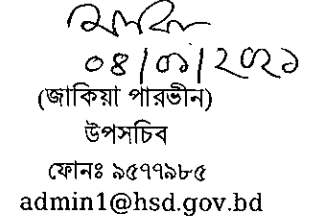 ০৪/০১/২০২১
(জাকিয়া পারভীন)
উপসচিব
ফোনঃ ৯৫৭৭৯৮৫
admin1@hsd.gov.bd